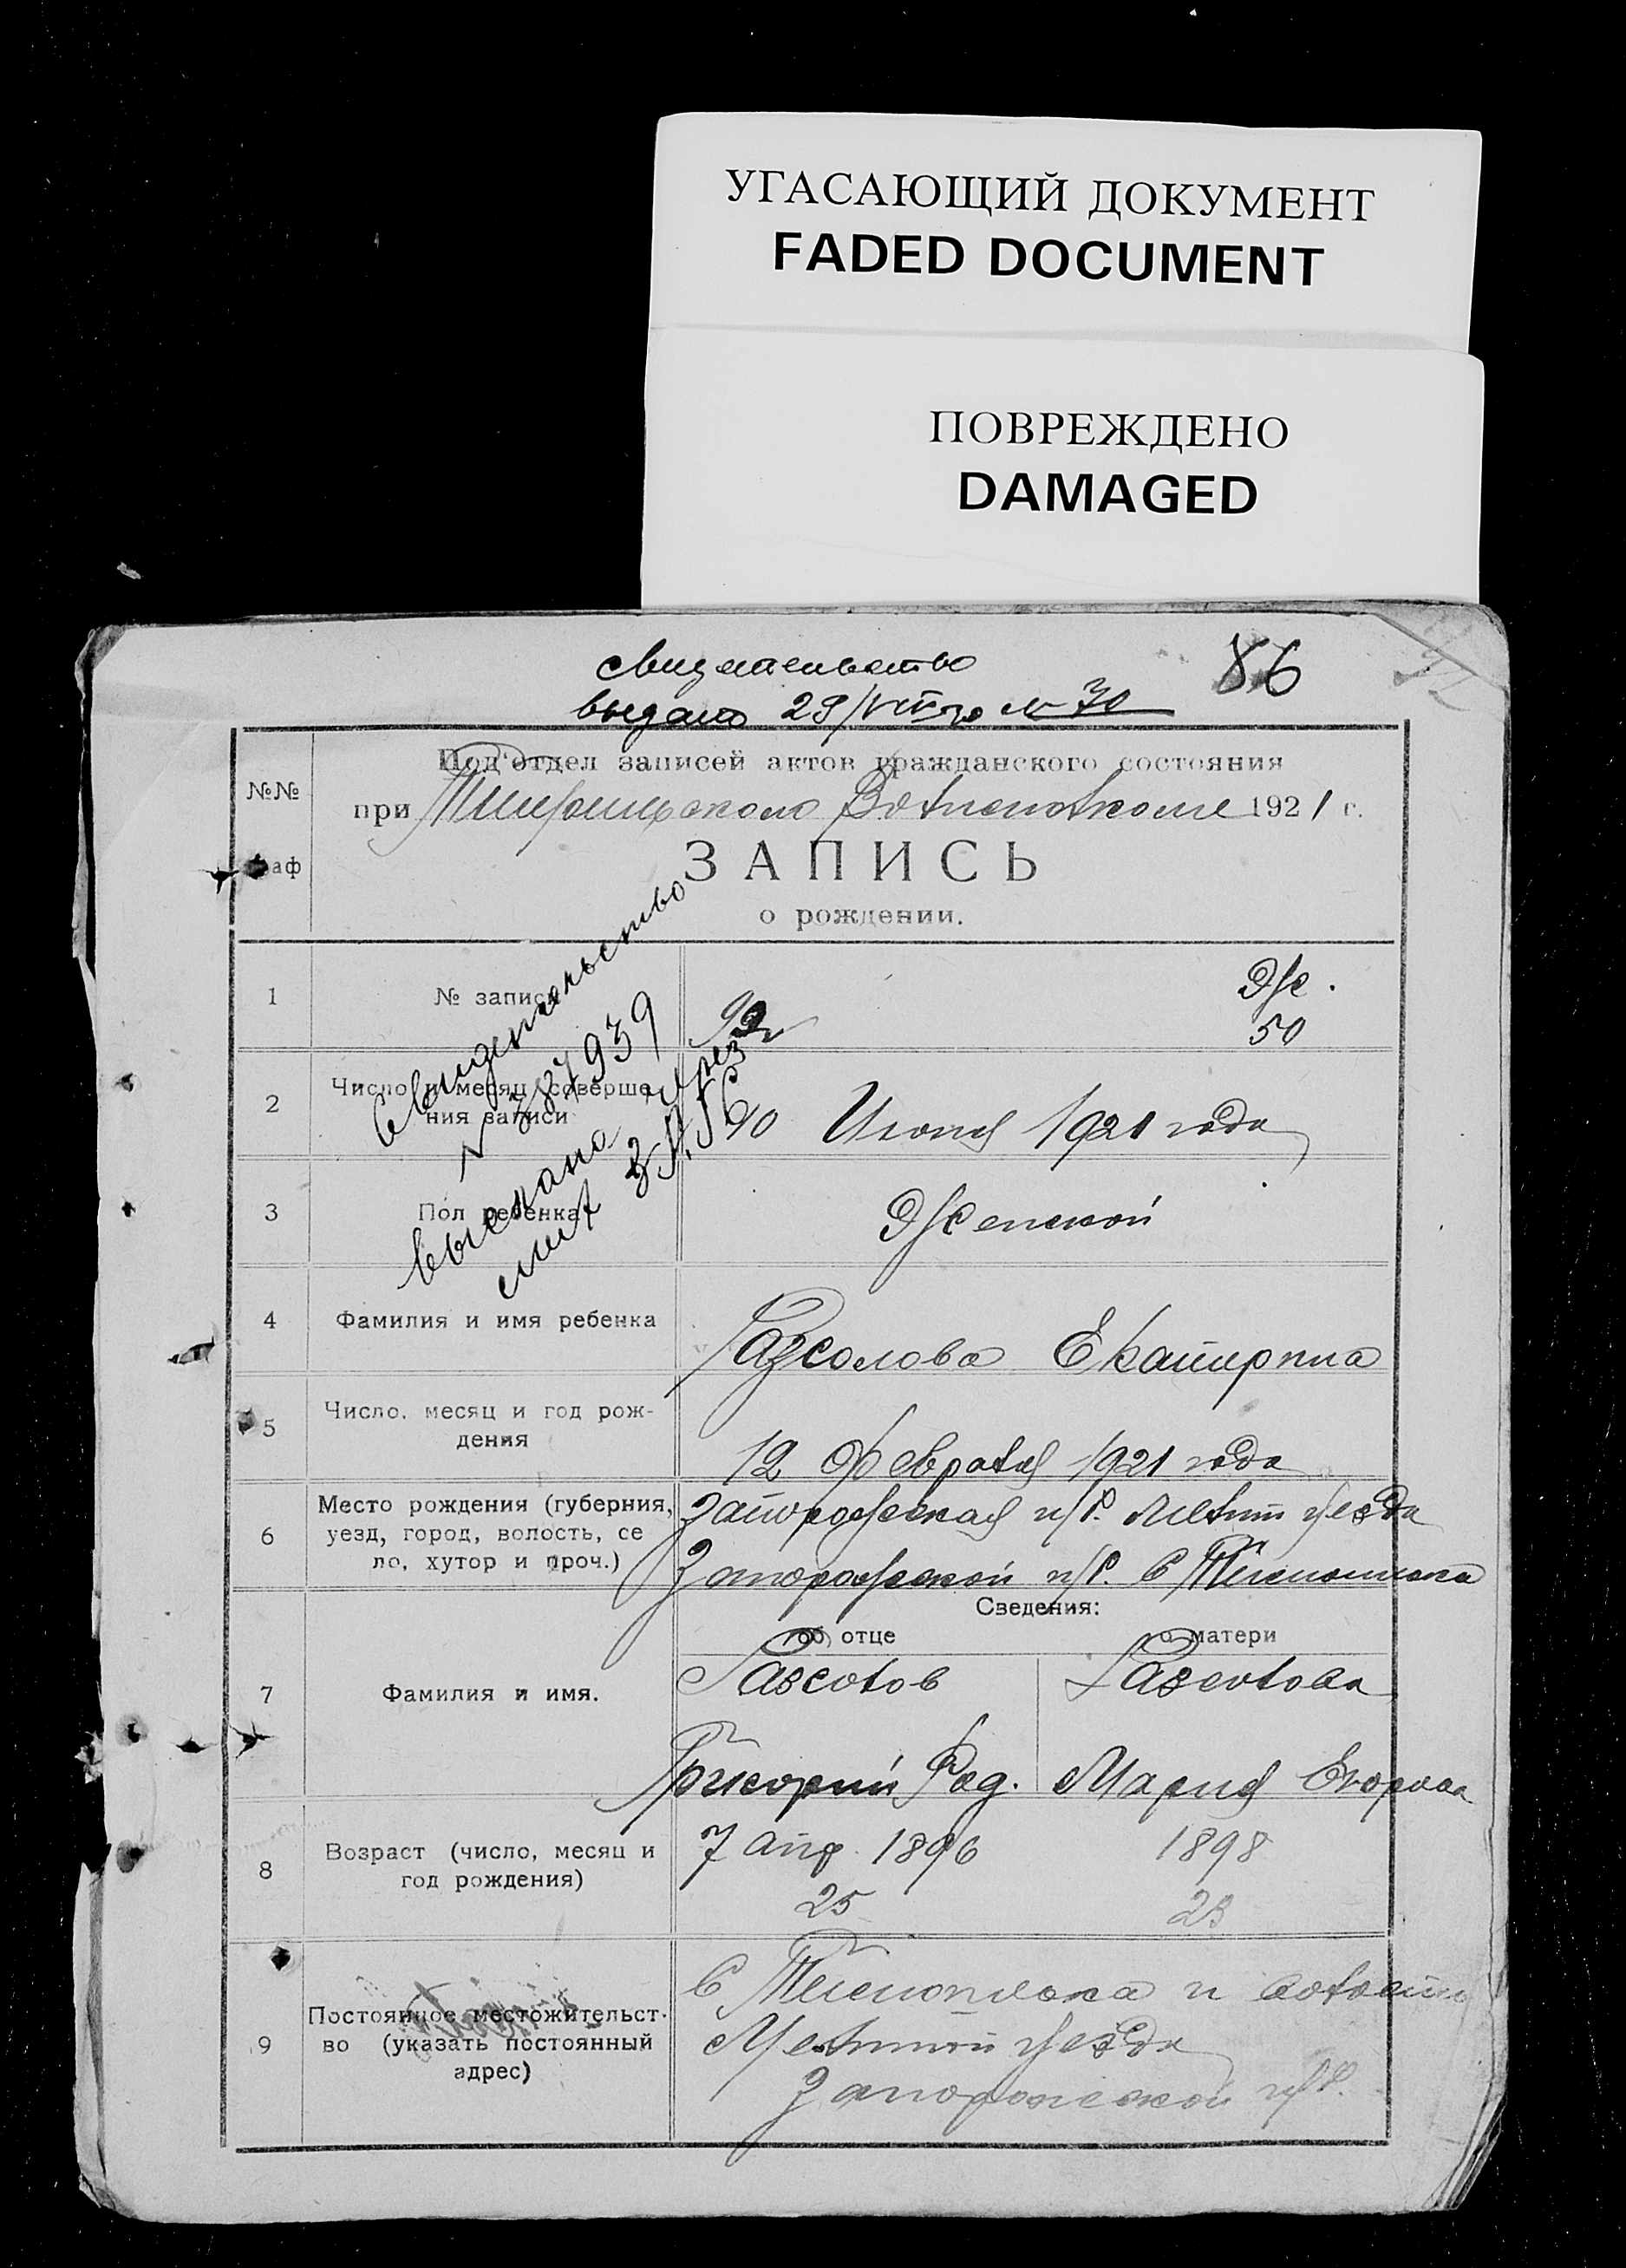 УГАСАЮЩИЙ ДОКУМЕНТ
FADED DOCUMENT
ПОВРЕЖДЕНО
DAMAGED
свидетельство
86
выдано 29/VIII № 30
№№
аф
Под'отдел записей актов гражданского состояния
при 1921 г.
ЗАПИСЬ
о рождении.
свидетельство
№ 387939
выслано через
ЗАГС
1
№ записи
92
Ж.
50
2
Число и месяц соверше
ния записи
10 Июня 1921 года
3
Пол ребенка
Женской
4
Фамилия и имя ребенка
Разсолова Екатирина
5
Число, месяц и год рож-
дения
12 Февраля 1921 года
6
Место рождения (губерния,
уезд, город, волость, се
ло, хутор и проч.)
Запорожская г/б. Мелит уезда
Запорожской г/б. С
Сведения:
об отце
о матери
7
Фамилия и имя.
Разсолов
Разсолова
Григорий Род.
Мария Егоровна
8
Возраст (число, месяц и
год рождения)
7 апр. 1896
1898
25
23
9
Постоянное местожительст-
во (указать постоянный
адрес)
С
уезда
Запорожской г/б.